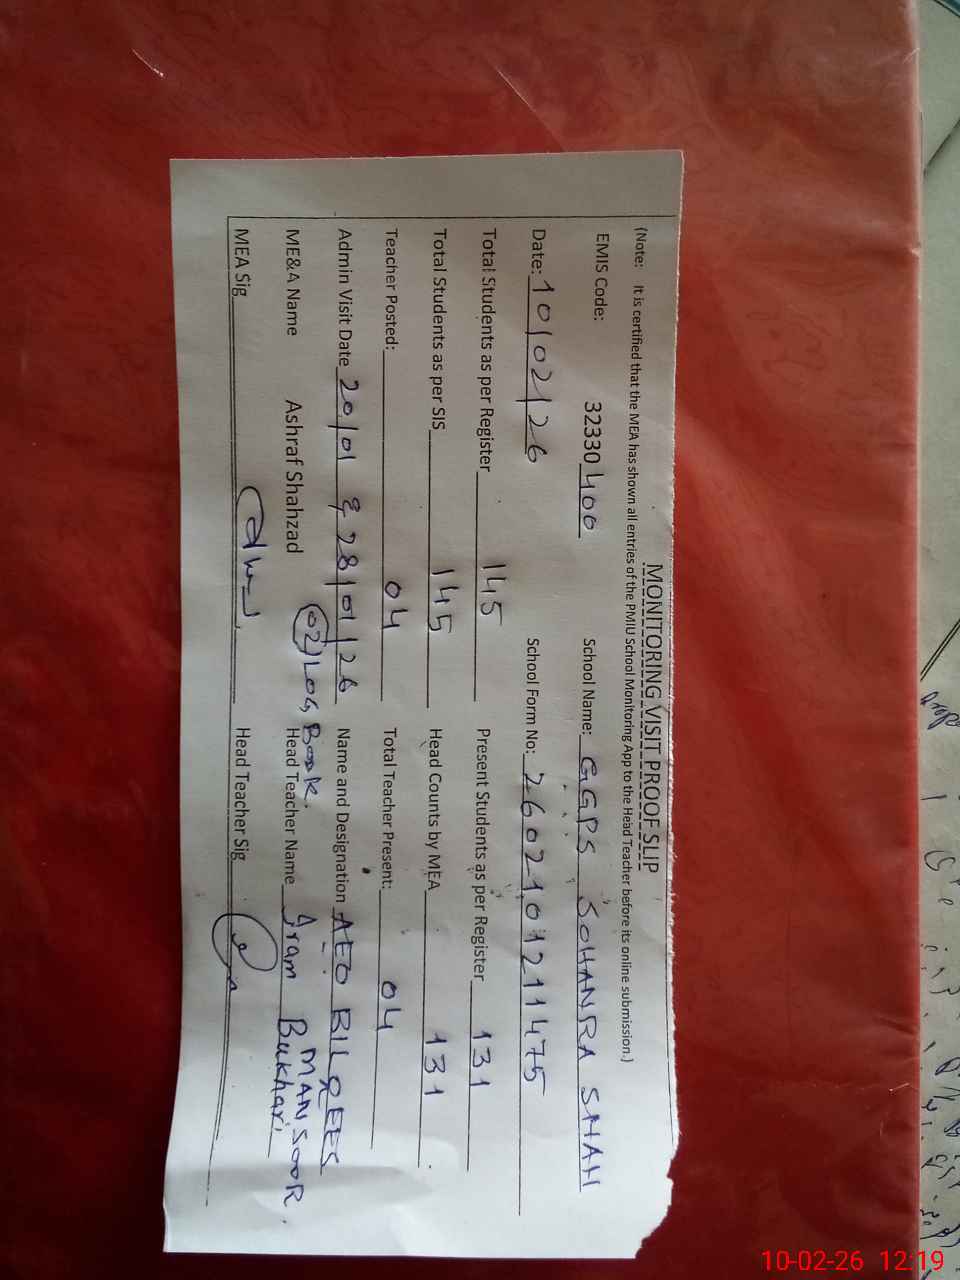 MONITORING VISIT PROOF SLIP
(Note: It is certified that the MEA has shown all entries of the PMIU School Monitoring App to the Head Teacher before its online submission.)
EMIS Code: 32330400 School Name: GGPS SOHANRA SHAH
Date: 10/02/26 School Form No: 2602101211475
Total Students as per Register 145 Present Students as per Register 131
Total Students as per SIS 145 Head Counts by MEA 131
Teacher Posted: 04 Total Teacher Present: 04
Admin Visit Date 20/01 & 28/01/26 Name and Designation AEO BILQEES MANSOOR.
02) LOG Book.
ME&A Name Ashraf Shahzad Head Teacher Name Iram Bukhari
MEA Sig Head Teacher Sig
10-02-26 12:19